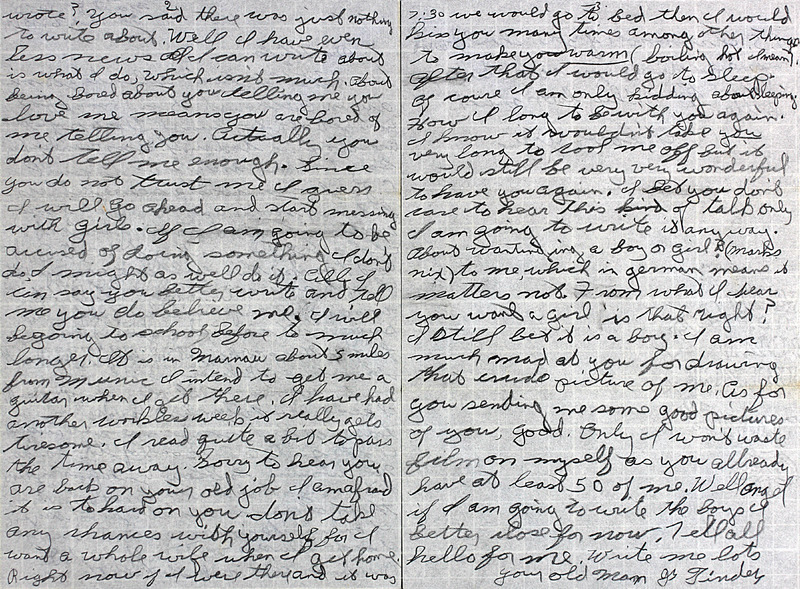 wrote? You said there was just nothing
to write about. Well I have even
less news all I can write about
is what I do, which isnt much. About
being bored about you telling me you
love me means you are bored of
me telling you. Actually you
dont tell me enough. Since
you do not trust me I guess
I will go ahead and start messing
with girls. If I am going to be
accused of doing something I dont
do I might as well do it. All I
can say you better write and tell
me you do believe me. I will
be going to school before to much
longer. It is in Marnau about 5 miles
from Munic I intend to get me a
guitar when I get there. I have had
another workless week, it really gets
tiresome. I read quite a bit to pass
the time away. Sorry to hear you
are back on your old job I am afraid
it is to hard on you dont take
any chances with yourself for I
want a whole wife when I get home.
Right now if I were there and it was
7:30 we would go to bed then I would
kiss you many times among other things
to make you warm (boiling hot I mean).
After that I would go to sleep.
of course I am only kidding about sleeping.
How I long to be with you again.
I know it wouldn't take you
very long to cool me off but it
would still be very very wonderful
to have you again. I bet you dont
care to hear this kind of talk only
I am going to write it anyway.
About wanting a boy or girl? (Marks
nix) to me, which in german means it
matters not. From what I hear
you want a girl is that right?
I still bet it is a boy. I am
much mad at you for drawing
that crude picture of me. As for
you sending me some good pictures
of you, good. Only I won't waste
film on myself as you allready
have at least 50 of me. Well angel
if I am going to write the boys I
better close for now. Tell all
hello for me. Write me lots
your old man